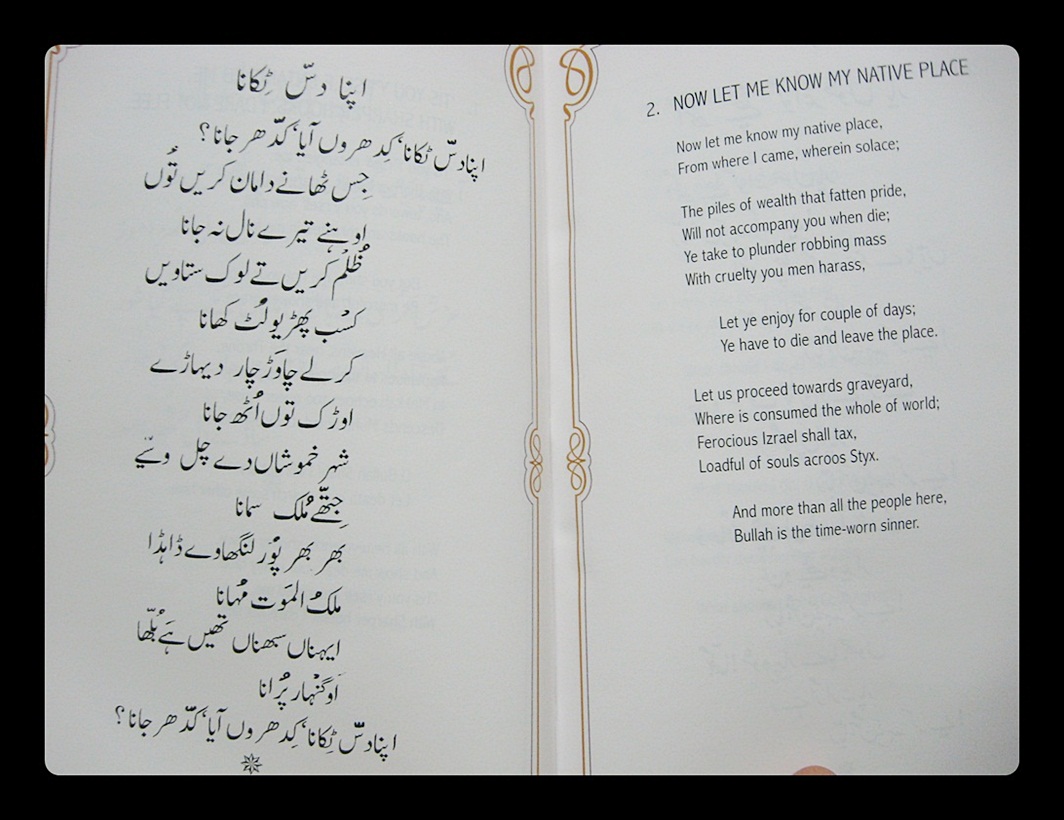 اپنا دسّ ٹِکانا
اپنا دسّ ٹِکانا، کِدھروں آیا، کدّھر جانا؟
جِس ٹھانے دا مان کریں تُوں
اوہنے تیرے نال نہ جانا
ظُلم کریں تے لوک ستاویں
کسْب پھڑیو لُٹ کھانا
کر لے چاوَڑ چار دیہاڑے
اوڑک توں اُٹھ جانا
شہر خموشاں دے چل وسّیے
جِتّھے مُلک سمانا
بھر بھر پُور لنگھاوے ڈاہڈا
ملکُ الموَت مُہانا
ایہناں سبھناں تھیں ہَے بُلّھا
اَوگنہار پُرانا
اپنا دسّ ٹِکانا، کِدھروں آیا، کدّھر جانا؟
2. NOW LET ME KNOW MY NATIVE PLACE
Now let me know my native place,
From where I came, wherein solace;
The piles of wealth that fatten pride,
Will not accompany you when die;
Ye take to plunder robbing mass
With cruelty you men harass,
Let ye enjoy for couple of days;
Ye have to die and leave the place.
Let us proceed towards graveyard,
Where is consumed the whole of world;
Ferocious Izrael shall tax,
Loadful of souls acroos Styx.
And more than all the people here,
Bullah is the time-worn sinner.